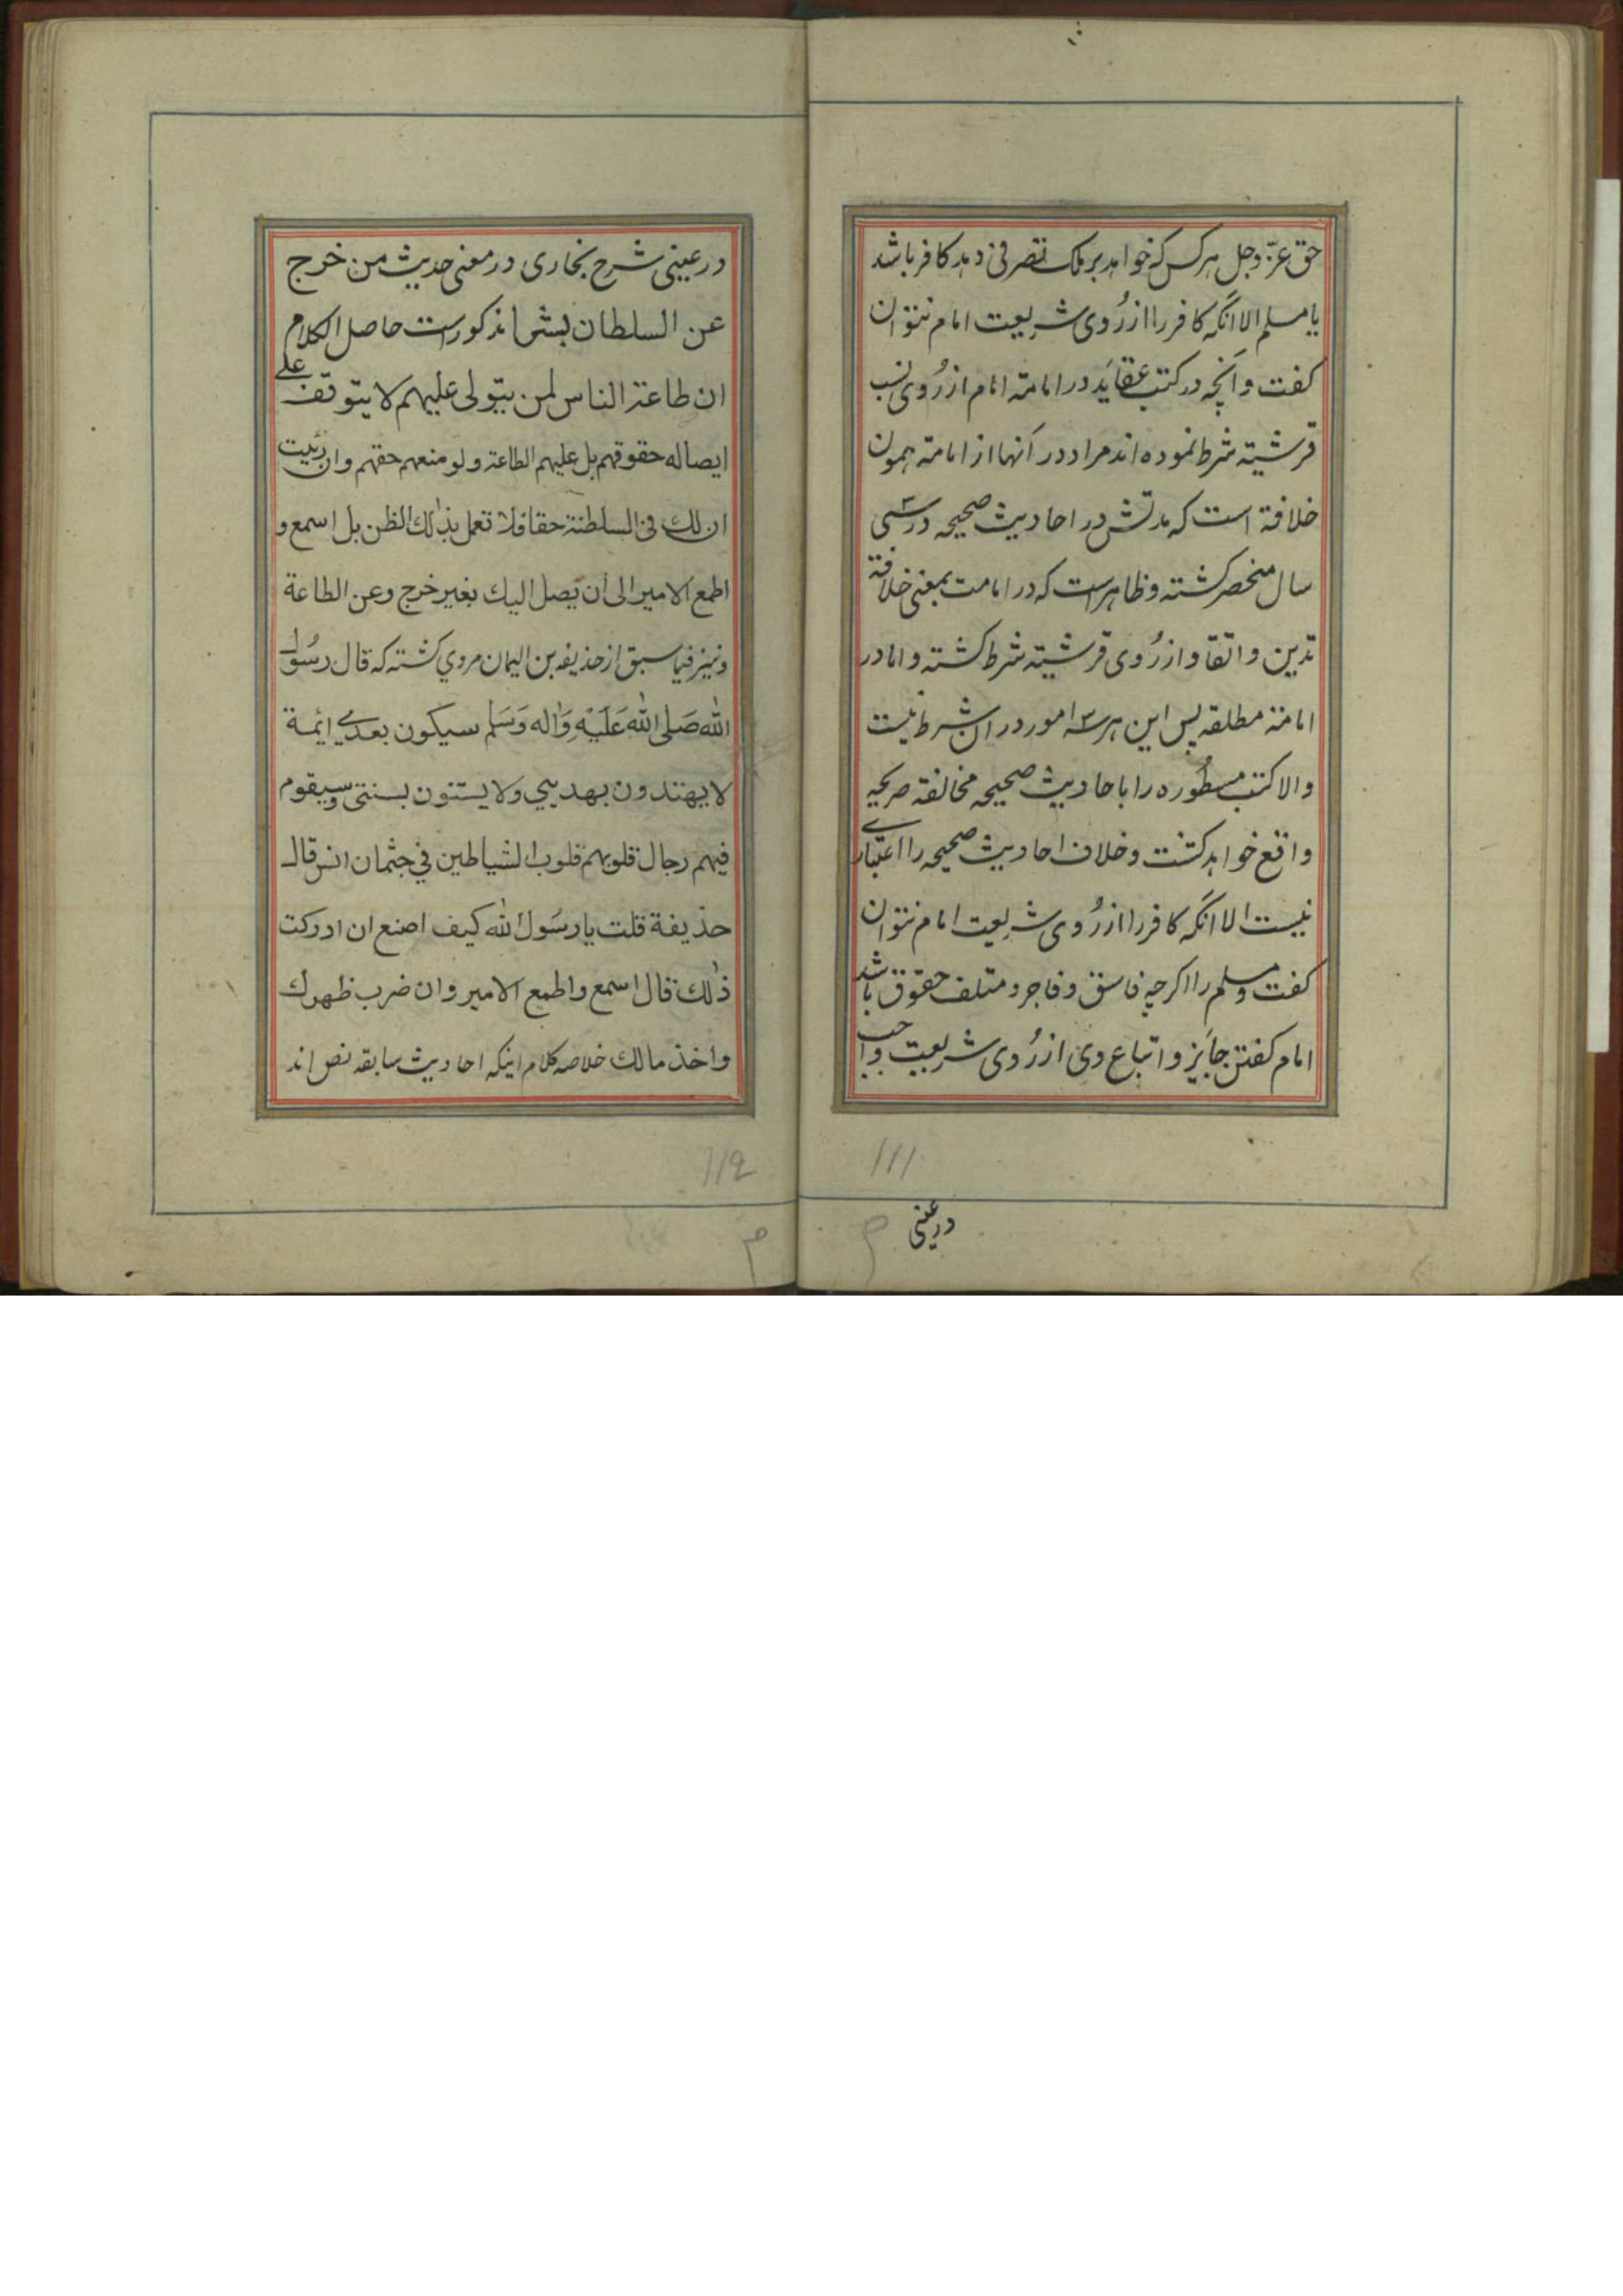 حق عزّ وجل هر کس که خواهد بر ملک تصرفی دهد کافر باشد
یا مسلم الا انکه کافر را از رُوی شریعت امام نتوان
کفت و آنچه در کتب عقاید در امامة امام از رُوی نسب
قرشیته شرط نموده اند مراد در آنها از امامة همون
خلافة است که مدتش در احادیث صحیحه در سی
سال منحصر کشته و ظاهر است که در امامت بمعنی خلافة
تدین و اتقا و از رُوی قرشیته شرط کشته و اما در
امامة مطلقه پس این هر سه امور در ان شرط نیست
والا کتب مسطُوره را با حادیث صحیحه مخالفة صریحه
واقع خواهد کشت و خلاف احادیث صحیحه را اعتباری
نیست الا انکه کافر را از رُوی شریعت امام نتوان
کفت و مسلم را اکرچه فاسق و فاجر و متلف حقوق باشد
امام کفتن جایز و اتباع وی از رُوی شریعت واجب
در عینی
۱۱۱
در عینی شرح بخاری در معنی حدیث من خرج
عن السلطان بشی مذکورست حاصل الکلام
ان طاعة الناس لمن یتولی علیهم لا یتوقف علے
ایصاله حقوقهم بل علیهم الطاعة ولو منعهم حقهم وان رئیت
ان لك فی السلطنة حقا فلا تعمل بذلك الظن بل اسمع و
اطمع الامیر الی أن یصل الیك بغیر خرج وعن الطاعة
ونیز فیما سبق از حذیفه بن الیمان مروي کشته که قال رسُول
الله صَلی الله عَلَیْهِ وَاله وَسَلم سیکون بعدی ائمة
لا یهتدون بهدیي ولا یستنون بسنتی وسیقوم
فیهم رجال قلوبهم قلوب الشیاطین في جثمان انس قال
حذیفة قلت یا رسُول الله کیف اصنع ان ادرکت
ذلك قال اسمع واطمع الامیر وان ضرب ظهرك
واخذ مالك خلاصه کلام اینکه احادیث سابقه نص اند
۱۱۲